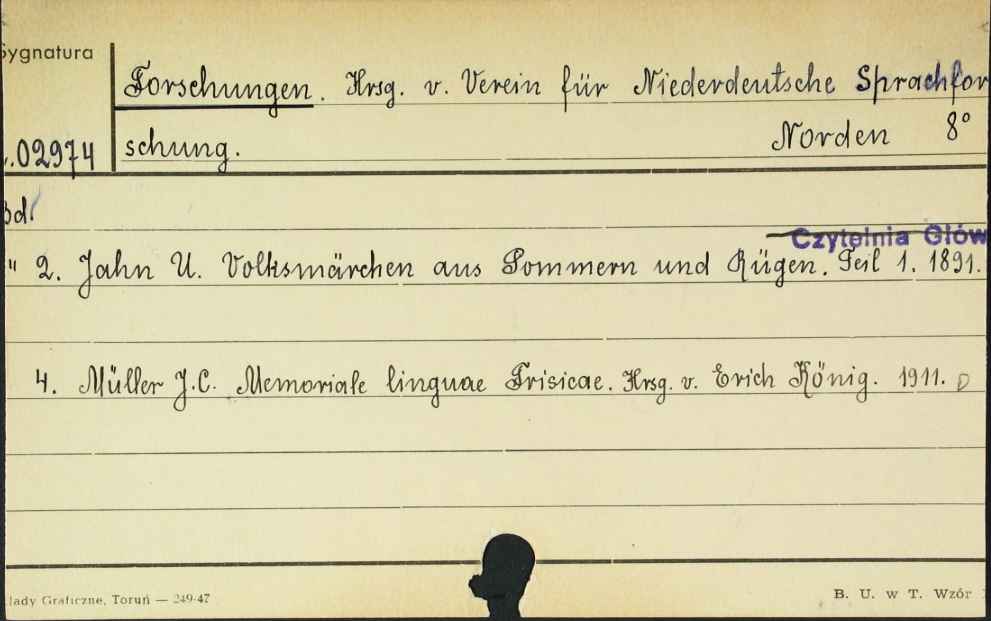 Sygnatura
Forschungen. Hrsg. v. Verein für Niederdeutsche Sprachfor
schung. Norden 8°
.02974
Bd.
Czytelnia Głów
" 2. Jahn U. Volksmärchen aus Pommern und Rügen. Teil 1. 1891.
4. Müller J.C. Memoriale linguae Frisicae. Hrsg. v. Erich König. 1911. D
łady Graficzne, Toruń — 249-47
B. U. w T. Wzór